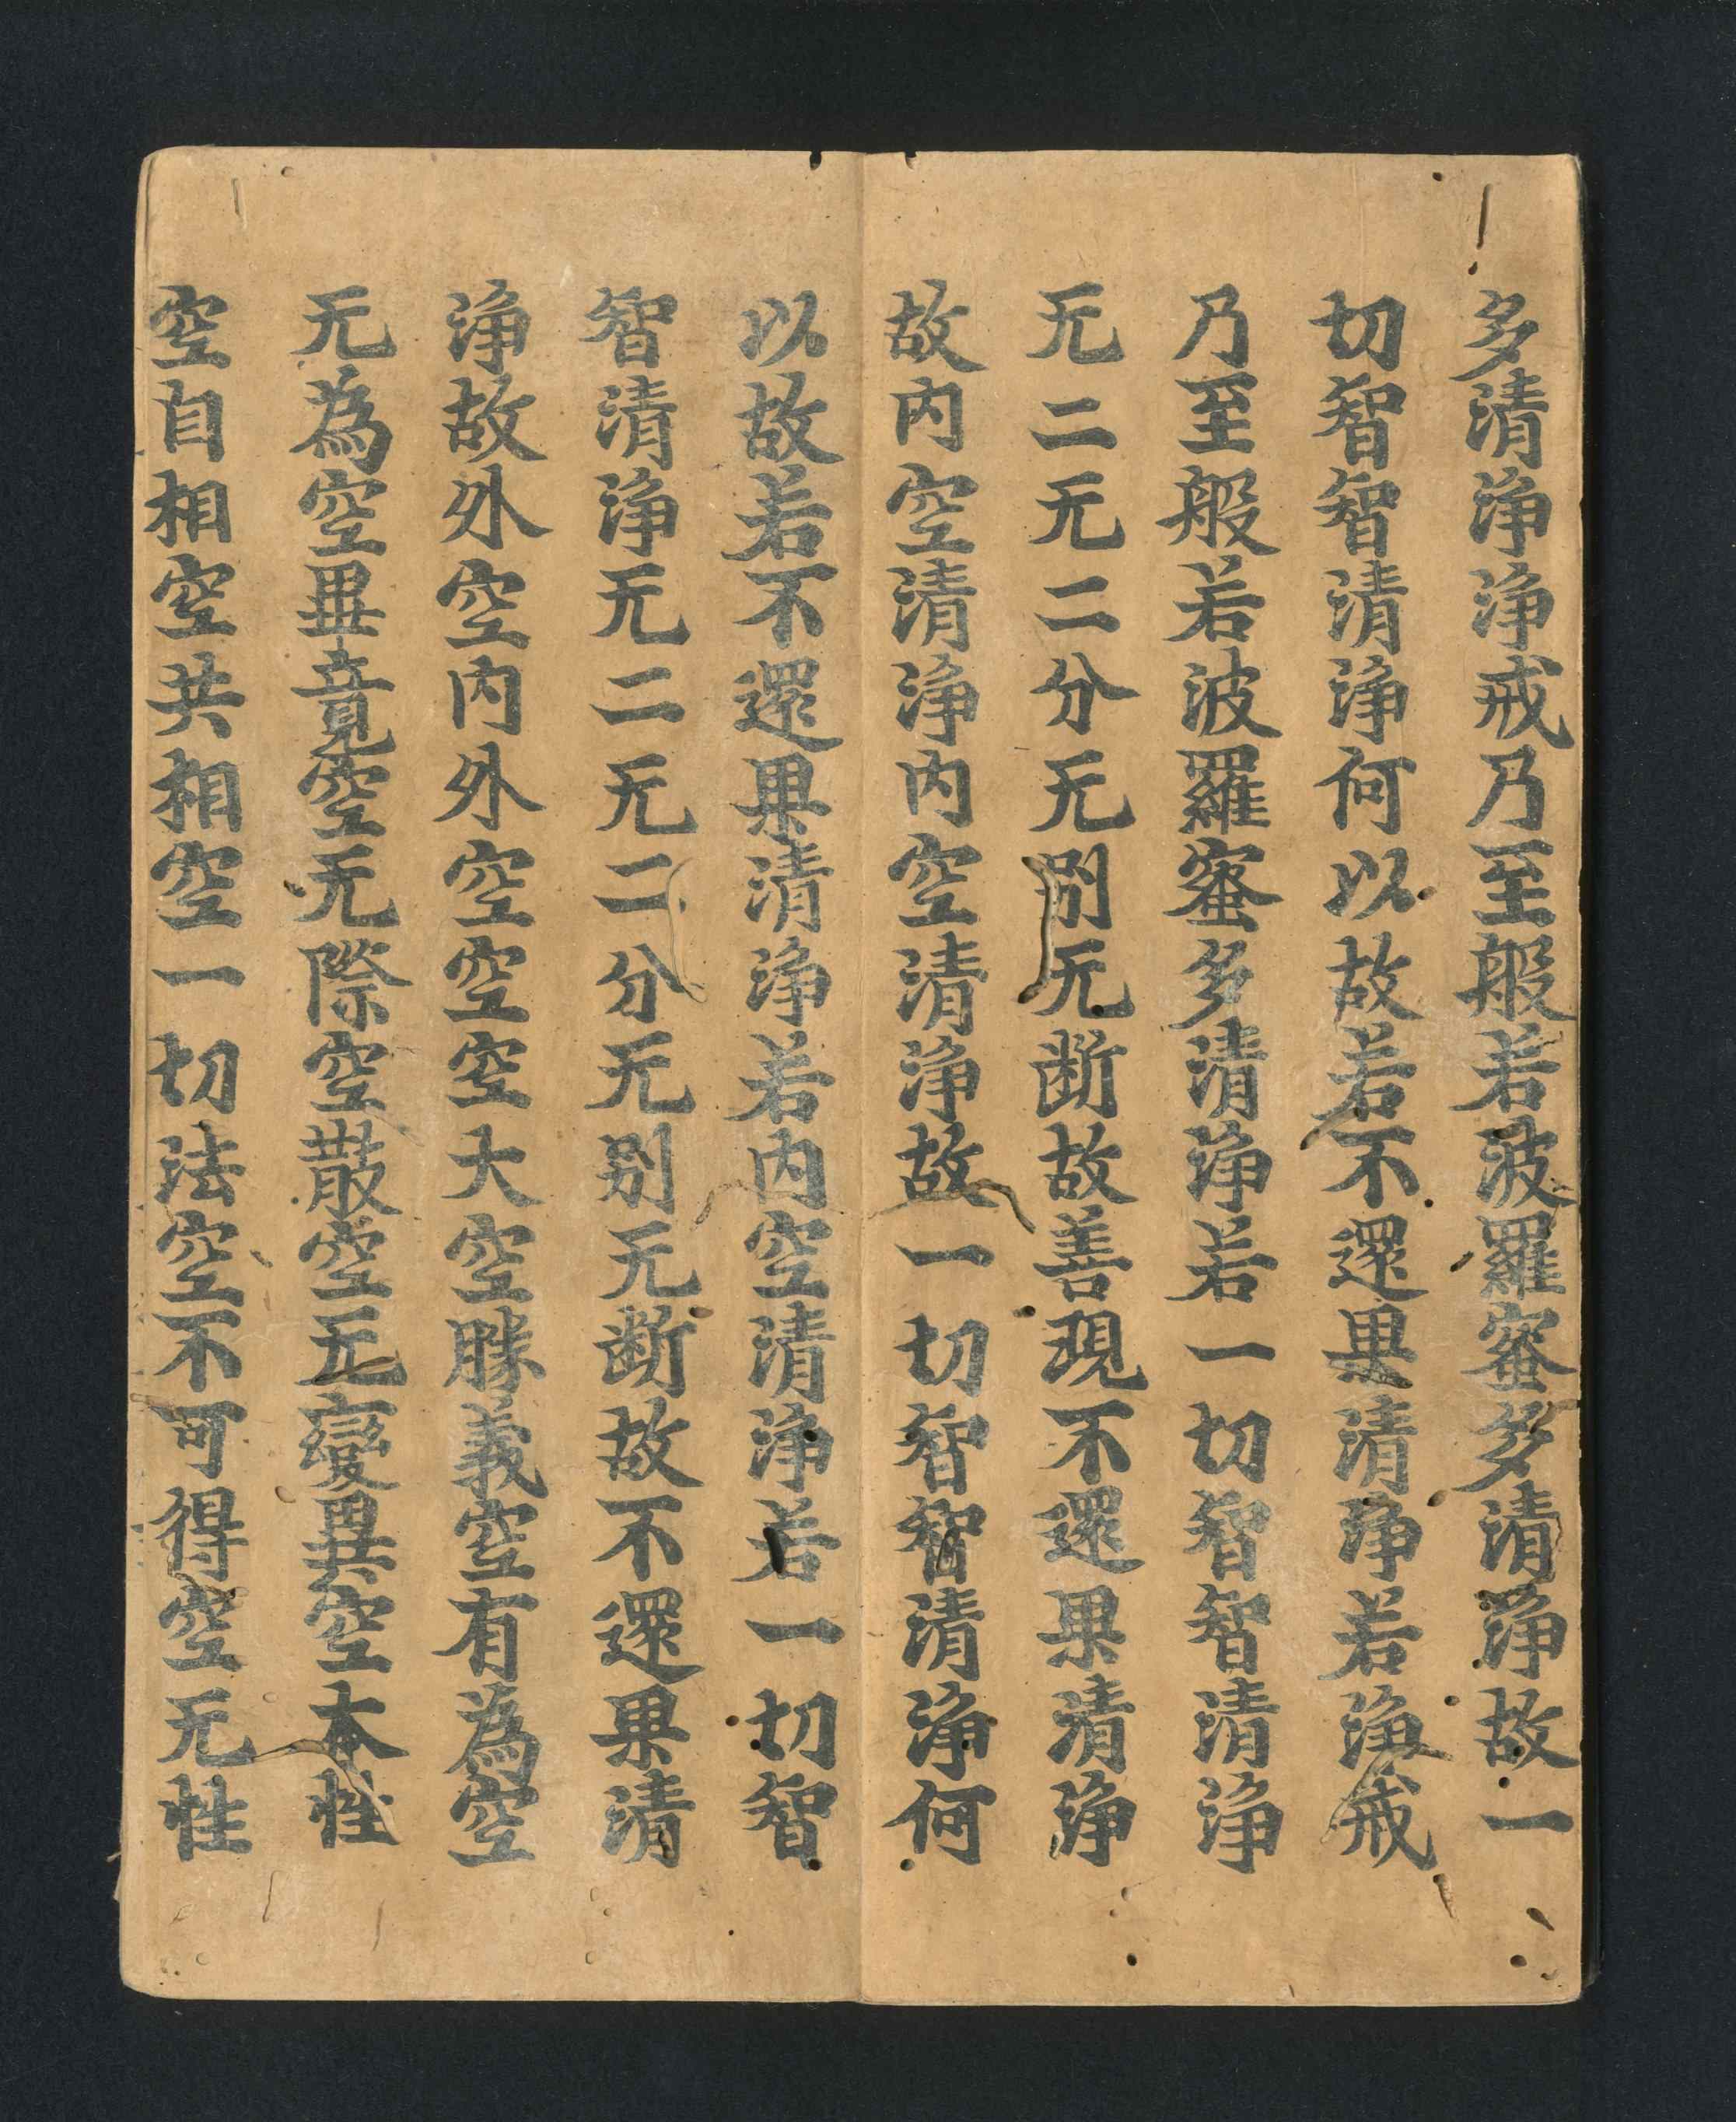 多清淨淨戒乃至般若波羅蜜多清淨故一
切智智清淨何以故若不還果清淨若淨戒
乃至般若波羅蜜多清淨若一切智智清淨
无二无二分无別无断故善現不還果清淨
故内空清淨内空清淨故一切智智清淨何
以故若不還果清淨若内空清淨若一切智
智清淨无二无二分无别无断故不還果清
淨故外空内外空空空大空勝義空有為空
无為空畢竟空无際空散空无變異空本性
空自相空共相空一切法空不可得空无性